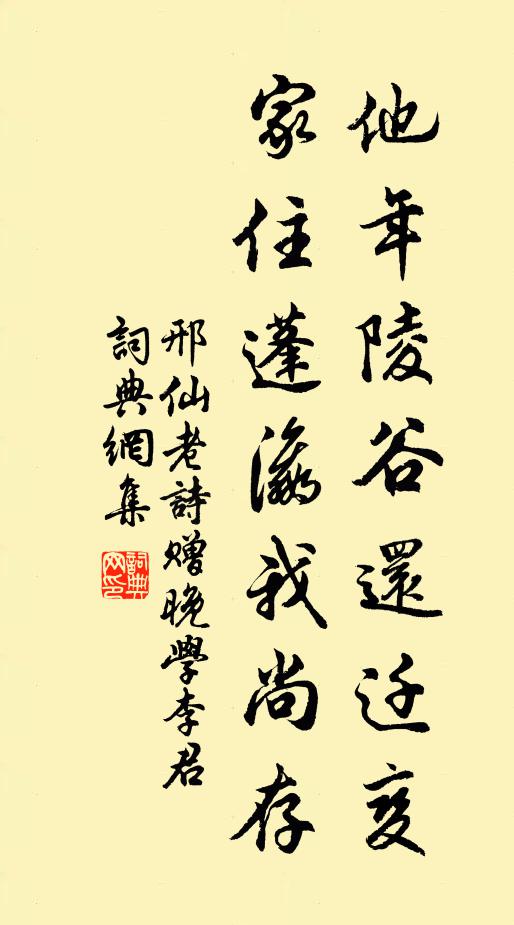 他年陵谷還迁变
家住蓬瀛我尚存
邢仙老詩赠晚學李君
詞典網集
詞典网印